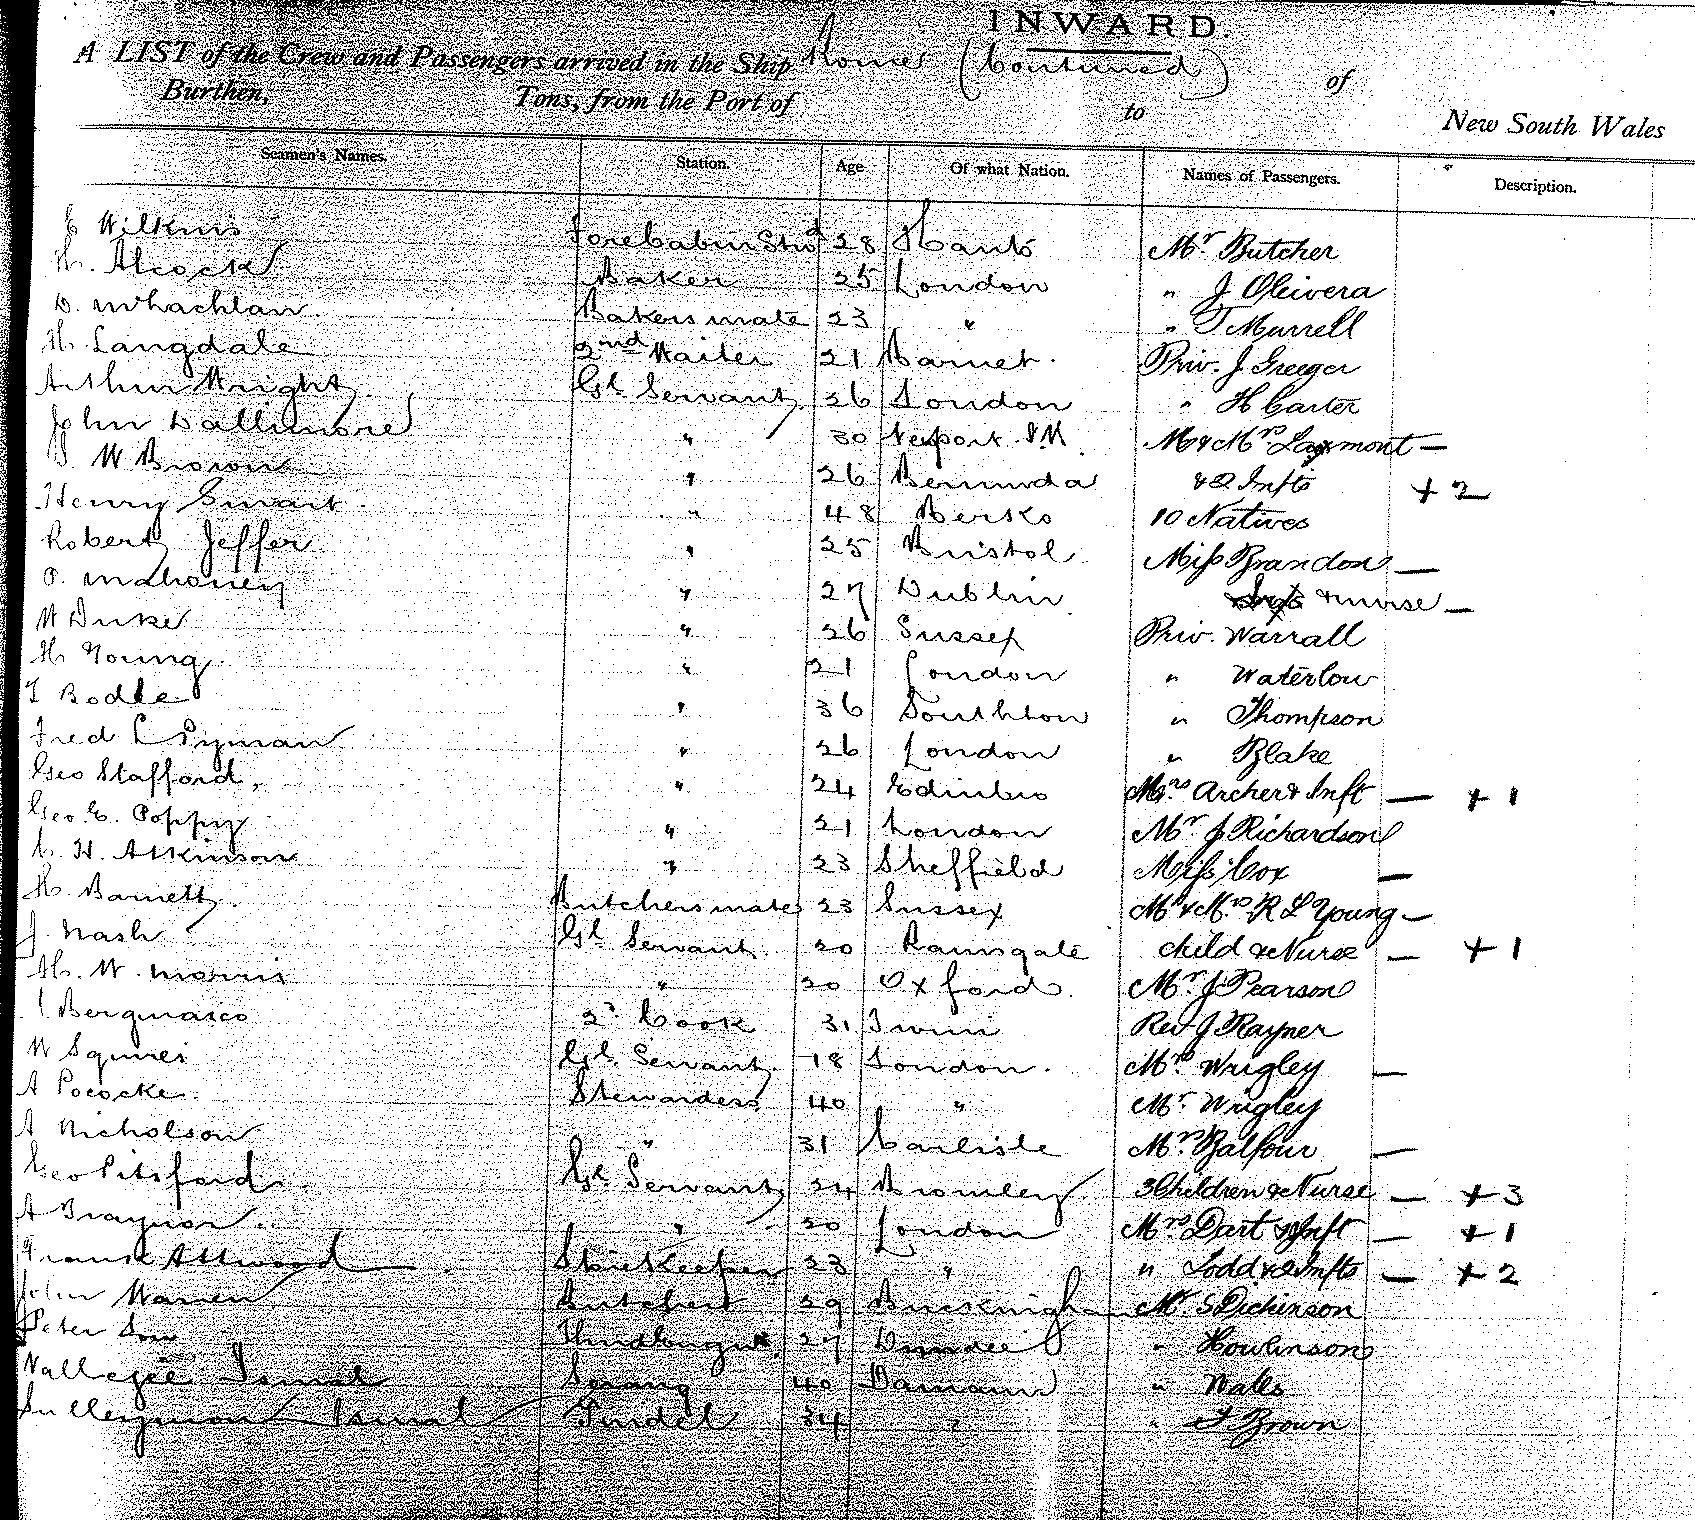 INWARD.
A LIST of the Crew and Passengers arrived in the Ship Rome (Continued) of
Burthen, Tons, from the Port of to New South Wales
Seamen's Names. Station. Age Of what Nation. Names of Passengers. Description.
E Wilkins Forecabin Stwd 28 Hants Mr Butcher
H. Alcock Baker 25 London " J Olivera
D. McLachlan Bakers mate 23 " " T Murrell
H. Langdale 2nd Waiter 21 Barnet. Priv. J. Greeger
Arthur Wright Gl. Servant 26 London " H Carter
John Dallimore " 30 Newport I.W. M & Mrs Laymont —
J. W Brown " 26 Bermuda & 2 Infts + 2
Henry Smart " 48 Berks 10 Natives
Robert Jeffer " 25 Bristol Miss Brandon —
P. Mahoney " 27 Dublin & nurse —
W Duke " 26 Sussex Priv. Warrall
H Young " 21 London " Waterlow
T Bodle " 36 Southton " Thompson
Fred C Pyman " 26 London " Blake
Geo Stafford " 24 Edinbro Mrs Archer & Inft — + 1
Geo. E. Poppy " 21 London Mr J Richardson
C. H. Atkinson " 23 Sheffield Miss Cox —
H. Barnett Butchers mate 23 Sussex Mr & Mrs R L Young —
J. Nash Gl. Servant 20 Ramsgate child & Nurse — + 1
H. W. Morris " 20 Oxford Mr. J Pearson
Bergmasco 2d Cook 31 Rev J. Rayner
W Squires Gl. Servant 18 London. Mrs Wrigley —
A Pococke Stewardess 40 " Mr. Wrigley
A Nicholson " 31 Carlisle Mrs Balfour —
Geo Pitsford Gl. Servant 24 Bromley 3 Children & Nurse — + 3
A Traynor " 20 London Mrs Dart & Inft — + 1
Frank Attwood Storekeeper 23 " " Todd & 2 Infts — + 2
John Warren Butcher 29 Buckingham Mr S Dickinson
Peter 27 Dundee " Howlinson
Ismal Serang 40 Damaun " Walls
Sulleyman Ismal Tindel 34 " " F Brown